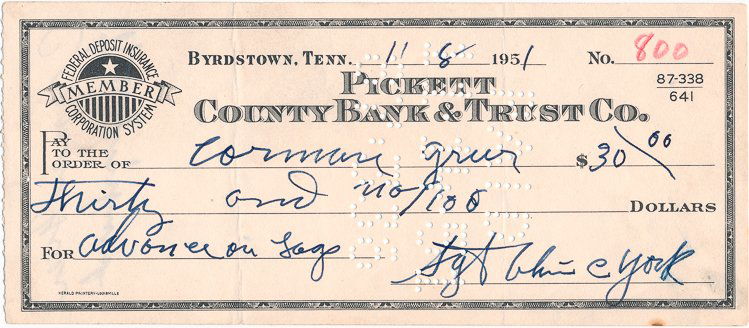 FEDERAL DEPOSIT INSURANCE
MEMBER
CORPORATION SYSTEM
BYRDSTOWN, TENN. 11 8 1951 No. 800
87-338
641
PICKETT
COUNTY BANK & TRUST CO.
PAY TO THE ORDER OF Corman Greer $30/00
Thirty and no/100 DOLLARS
FOR advance on Logs Sgt Alvin C York
HERALD PRINTERY-LOUISVILLE